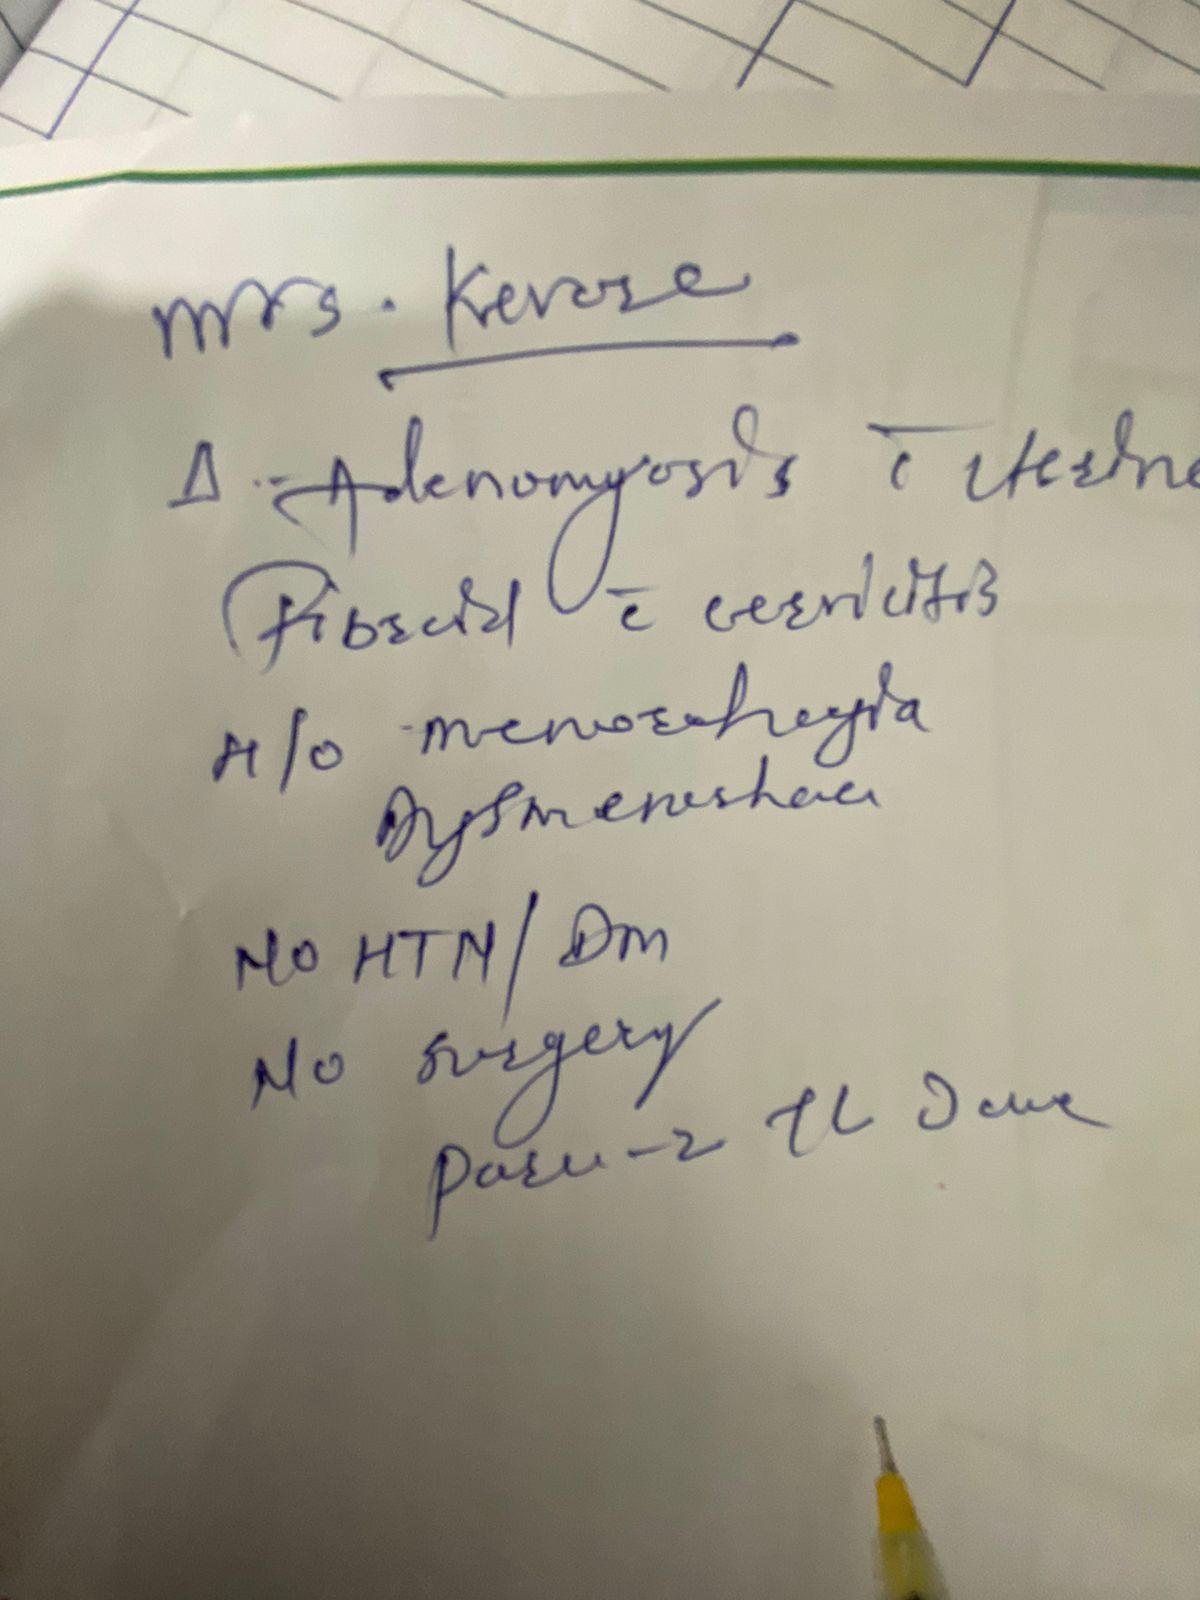 Mrs. Kevare
Δ :- Adenomyosis c̄ uterine
Fibroid c̄ cervicitis
H/o menorrhagia
Dysmenorrhoea
No HTN/Dm
No surgery
Para-2 TL Done